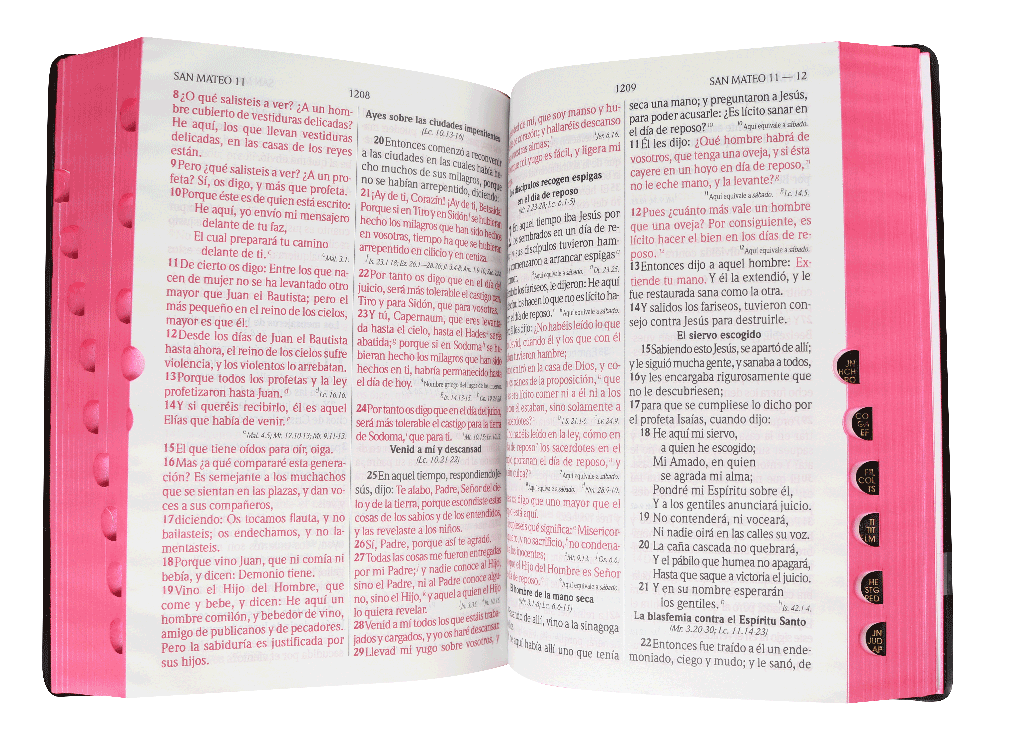 SAN MATEO 11
1208
8¿O qué salisteis a ver? ¿A un hom-
bre cubierto de vestiduras delicadas?
He aquí, los que llevan vestiduras
delicadas, en las casas de los reyes
están.
9Pero ¿qué salisteis a ver? ¿A un pro-
feta? Sí, os digo, y más que profeta.
10Porque éste es de quien está escrito:
He aquí, yo envío mi mensajero
delante de tu faz,
El cual preparará tu camino
delante de ti.
Mal. 3.1.
11De cierto os digo: Entre los que na-
cen de mujer no se ha levantado otro
mayor que Juan el Bautista; pero el
más pequeño en el reino de los cielos,
mayor es que él.
12Desde los días de Juan el Bautista
hasta ahora, el reino de los cielos sufre
violencia, y los violentos lo arrebatan.
13Porque todos los profetas y la ley
profetizaron hasta Juan.
Lc. 16.16.
14Y si queréis recibirlo, él es aquel
Elías que había de venir.
Mal. 4.5; Mt. 17.10-13; Mr. 9.11-13.
15El que tiene oídos para oír, oiga.
16Mas ¿a qué compararé esta genera-
ción? Es semejante a los muchachos
que se sientan en las plazas, y dan vo-
ces a sus compañeros,
17diciendo: Os tocamos flauta, y no
bailasteis; os endechamos, y no la-
mentasteis.
18Porque vino Juan, que ni comía ni
bebía, y dicen: Demonio tiene.
19Vino el Hijo del Hombre, que
come y bebe, y dicen: He aquí un
hombre comilón, y bebedor de vino,
amigo de publicanos y de pecadores.
Pero la sabiduría es justificada por
sus hijos.
Ayes sobre las ciudades impenitentes
(Lc. 10.13-16)
20Entonces comenzó a reconvenir
a las ciudades en las cuales había he-
cho muchos de sus milagros, porque
no se habían arrepentido, diciendo:
21¡Ay de ti, Corazín! ¡Ay de ti, Betsaida!
Porque si en Tiro y en Sidón se hubieran
hecho los milagros que han sido hechos
en vosotras, tiempo ha que se hubieran
arrepentido en cilicio y en ceniza.
22Por tanto os digo que en el día del
juicio, será más tolerable el castigo para
Tiro y para Sidón, que para vosotras.
23Y tú, Capernaum, que eres levanta-
da hasta el cielo, hasta el Hades serás
abatida; porque si en Sodoma se hu-
bieran hecho los milagros que han sido
hechos en ti, habría permanecido hasta
el día de hoy.
24Por tanto os digo que en el día del juicio,
será más tolerable el castigo para la tierra
de Sodoma, que para ti.
Venid a mí y descansad
(Lc. 10.21-22)
25En aquel tiempo, respondiendo Je-
sús, dijo: Te alabo, Padre, Señor del cie-
lo y de la tierra, porque escondiste estas
cosas de los sabios y de los entendidos,
y las revelaste a los niños.
26Sí, Padre, porque así te agradó.
27Todas las cosas me fueron entregadas
por mi Padre; y nadie conoce al Hijo,
sino el Padre, ni al Padre conoce algu-
no, sino el Hijo, y aquel a quien el Hijo
lo quiera revelar.
28Venid a mí todos los que estáis traba-
jados y cargados, y yo os haré descansar.
29Llevad mi yugo sobre vosotros, y
1209
SAN MATEO 11 — 12
de mí, que soy manso y hu-
corazón; y hallaréis descanso
vuestras almas;
mi yugo es fácil, y ligera mi
discípulos recogen espigas
en el día de reposo
aquel tiempo iba Jesús por
sembrados en un día de re-
sus discípulos tuvieron ham-
comenzaron a arrancar espigas
los fariseos, le dijeron: He aquí
hacen lo que no es lícito ha-
el día de reposo.
les dijo: ¿No habéis leído lo que
cuando él y los que con él
tuvieron hambre;
entró en la casa de Dios, y co-
panes de la proposición, que
era lícito comer ni a él ni a los
él estaban, sino solamente a
habéis leído en la ley, cómo en
de reposo los sacerdotes en el
profanan el día de reposo, y
culpa?
os digo que uno mayor que el
está aquí.
qué significa: Misericor-
y no sacrificio, no condena-
inocentes;
el Hijo del Hombre es Señor
de reposo.
El hombre de la mano seca
de allí, vino a la sinagoga
aquí había allí uno que tenía
seca una mano; y preguntaron a Jesús,
para poder acusarle: ¿Es lícito sanar en
el día de reposo?
Aquí equivale a sábado.
11Él les dijo: ¿Qué hombre habrá de
vosotros, que tenga una oveja, y si ésta
cayere en un hoyo en día de reposo,
no le eche mano, y la levante?
Aquí equivale a sábado. Lc. 14.5.
12Pues ¿cuánto más vale un hombre
que una oveja? Por consiguiente, es
lícito hacer el bien en los días de re-
poso.
Aquí equivale a sábado.
13Entonces dijo a aquel hombre: Ex-
tiende tu mano. Y él la extendió, y le
fue restaurada sana como la otra.
14Y salidos los fariseos, tuvieron con-
sejo contra Jesús para destruirle.
El siervo escogido
15Sabiendo esto Jesús, se apartó de allí;
y le siguió mucha gente, y sanaba a todos,
16y les encargaba rigurosamente que
no le descubriesen;
17para que se cumpliese lo dicho por
el profeta Isaías, cuando dijo:
18 He aquí mi siervo,
a quien he escogido;
Mi Amado, en quien
se agrada mi alma;
Pondré mi Espíritu sobre él,
Y a los gentiles anunciará juicio.
19 No contenderá, ni voceará,
Ni nadie oirá en las calles su voz.
20 La caña cascada no quebrará,
Y el pábilo que humea no apagará,
Hasta que saque a victoria el juicio.
21 Y en su nombre esperarán
los gentiles.
Is. 42.1-4.
La blasfemia contra el Espíritu Santo
(Mr. 3.20-30; Lc. 11.14-23)
22Entonces fue traído a él un ende-
moniado, ciego y mudo; y le sanó, de